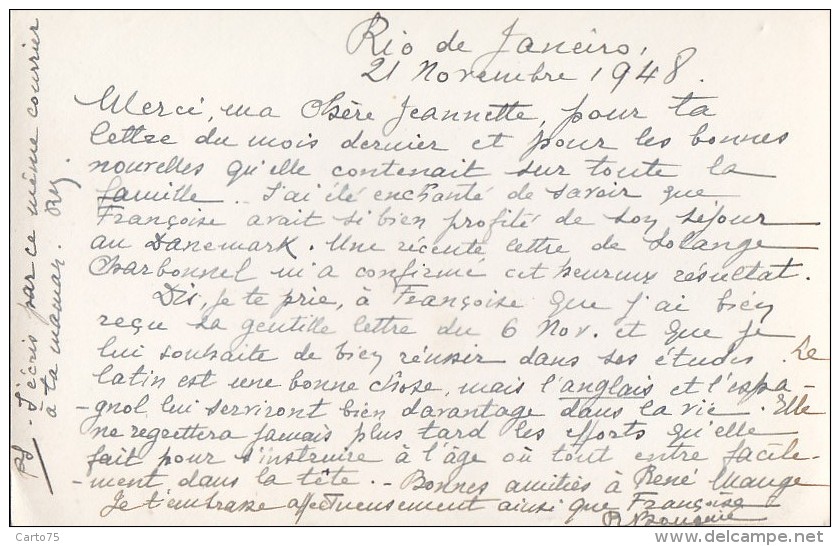 Rio de Janeiro,
21 Novembre 1948.
Merci, ma Chère Jeannette, pour ta
lettre du mois dernier et pour les bonnes
nouvelles qu'elle contenait sur toute la
famille. J'ai été enchanté de savoir que
Françoise avait si bien profité de son séjour
au Danemark. Une récente lettre de Solange
Charbonnel m'a confirmé cet heureux résultat.
Dis, je te prie, à Françoise que j'ai bien
reçu sa gentille lettre du 6 Nov. et que je
lui souhaite de bien réussir dans ses études. Le
latin est une bonne chose, mais l'anglais et l'espa-
-gnol lui serviront bien davantage dans la vie. Elle
ne regrettera jamais plus tard les efforts qu'elle
fait pour s'instruire à l'âge où tout entre facile-
-ment dans la tête. - Bonnes amitiés à René
Je t'embrasse affectueusement ainsi que Françoise
PS - J'écris par ce même courrier
à ta maman.
Carto75
www.delcampe.net